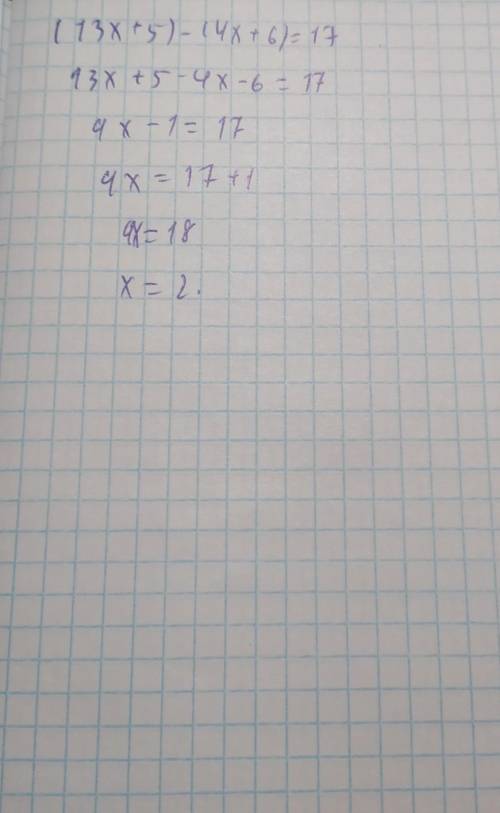 (13x+5)-(4x+6)=17
13x+5-4x-6=17
9x-1=17
9x=17+1
9x=18
x=2.